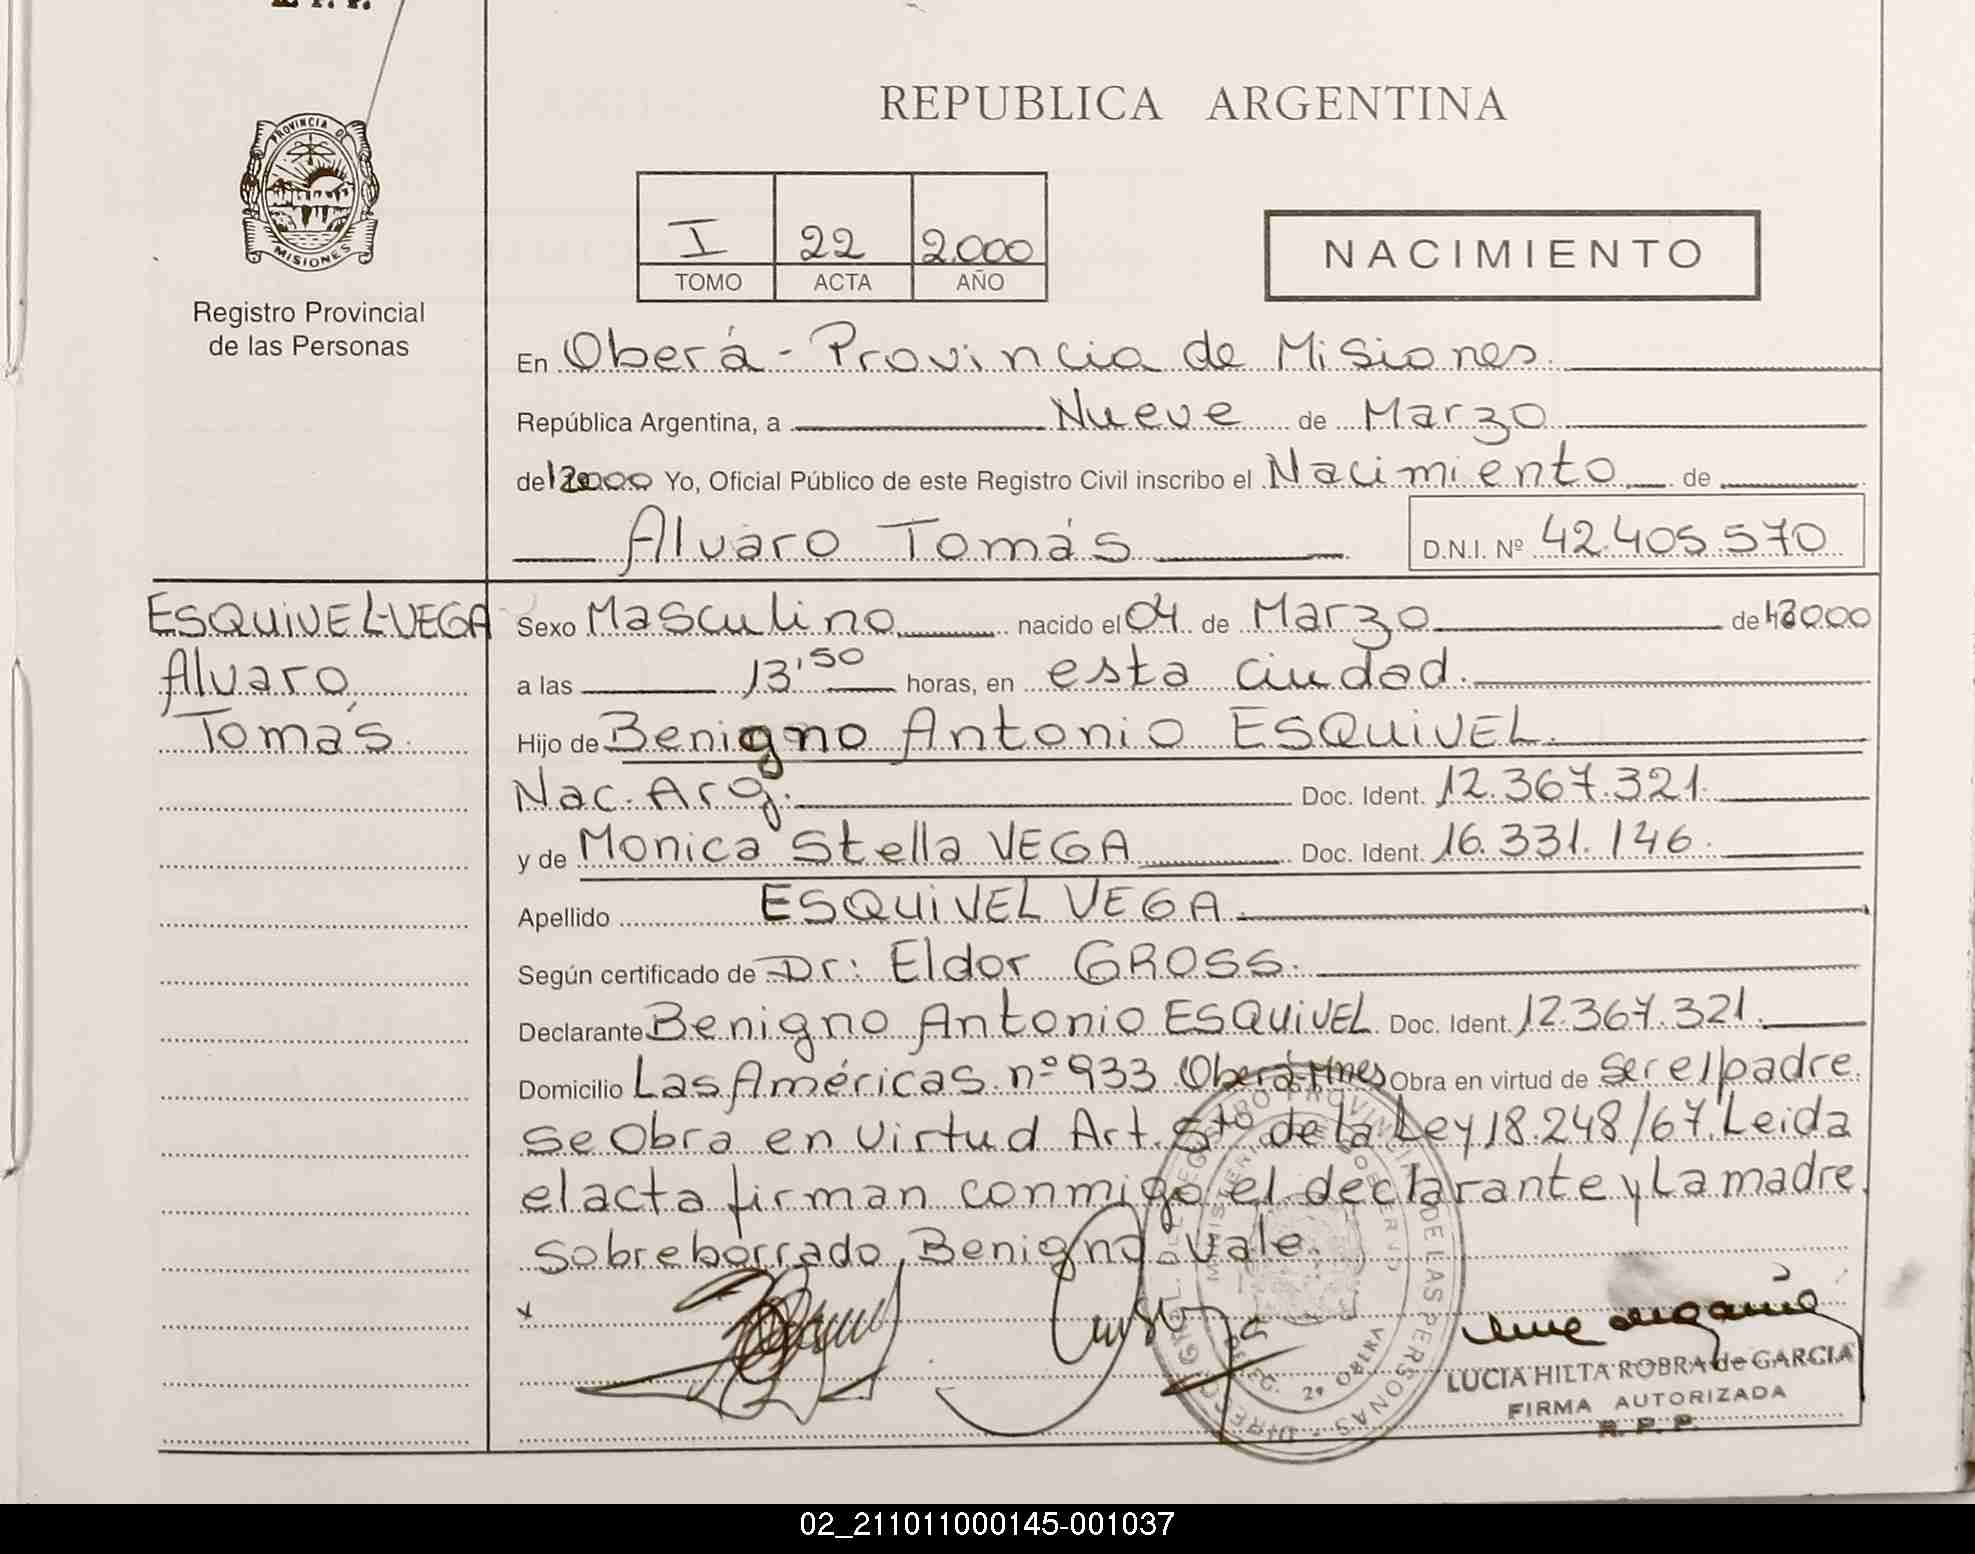 PROVINCIA DE
MISIONES
Registro Provincial
de las Personas
REPUBLICA ARGENTINA
I 22 2.000
TOMO ACTA AÑO
NACIMIENTO
En Oberá - Provincia de Misiones.
República Argentina, a Nueve de Marzo
de 2000 Yo, Oficial Público de este Registro Civil inscribo el Nacimiento de
Alvaro Tomás D.N.I. Nº 42.405.570
ESQUIVEL-VEGA
Alvaro
Tomás.
Sexo Masculino nacido el 04 de Marzo de 2000
a las 13'50 horas, en esta ciudad.
Hijo de Benigno Antonio ESQUIVEL.
Nac. Arg. Doc. Ident. 12.367.321.
y de Monica Stella VEGA Doc. Ident. 16.331.146.
Apellido ESQUIVEL VEGA.
Según certificado de Dr: Eldor GROSS.
Declarante Benigno Antonio ESQUIVEL Doc. Ident. 12.367.321.
Domicilio Las Américas nº 933 Oberá-Mnes Obra en virtud de ser el padre.
Se Obra en virtud Art. 5to de la Ley 18.248/67. Leida
el acta firman conmigo el declarante y La madre.
Sobreborrado Benigno. Vale.
LUCIA HILTA ROBRA de GARCIA
FIRMA AUTORIZADA
R. P. P.
02_211011000145-001037